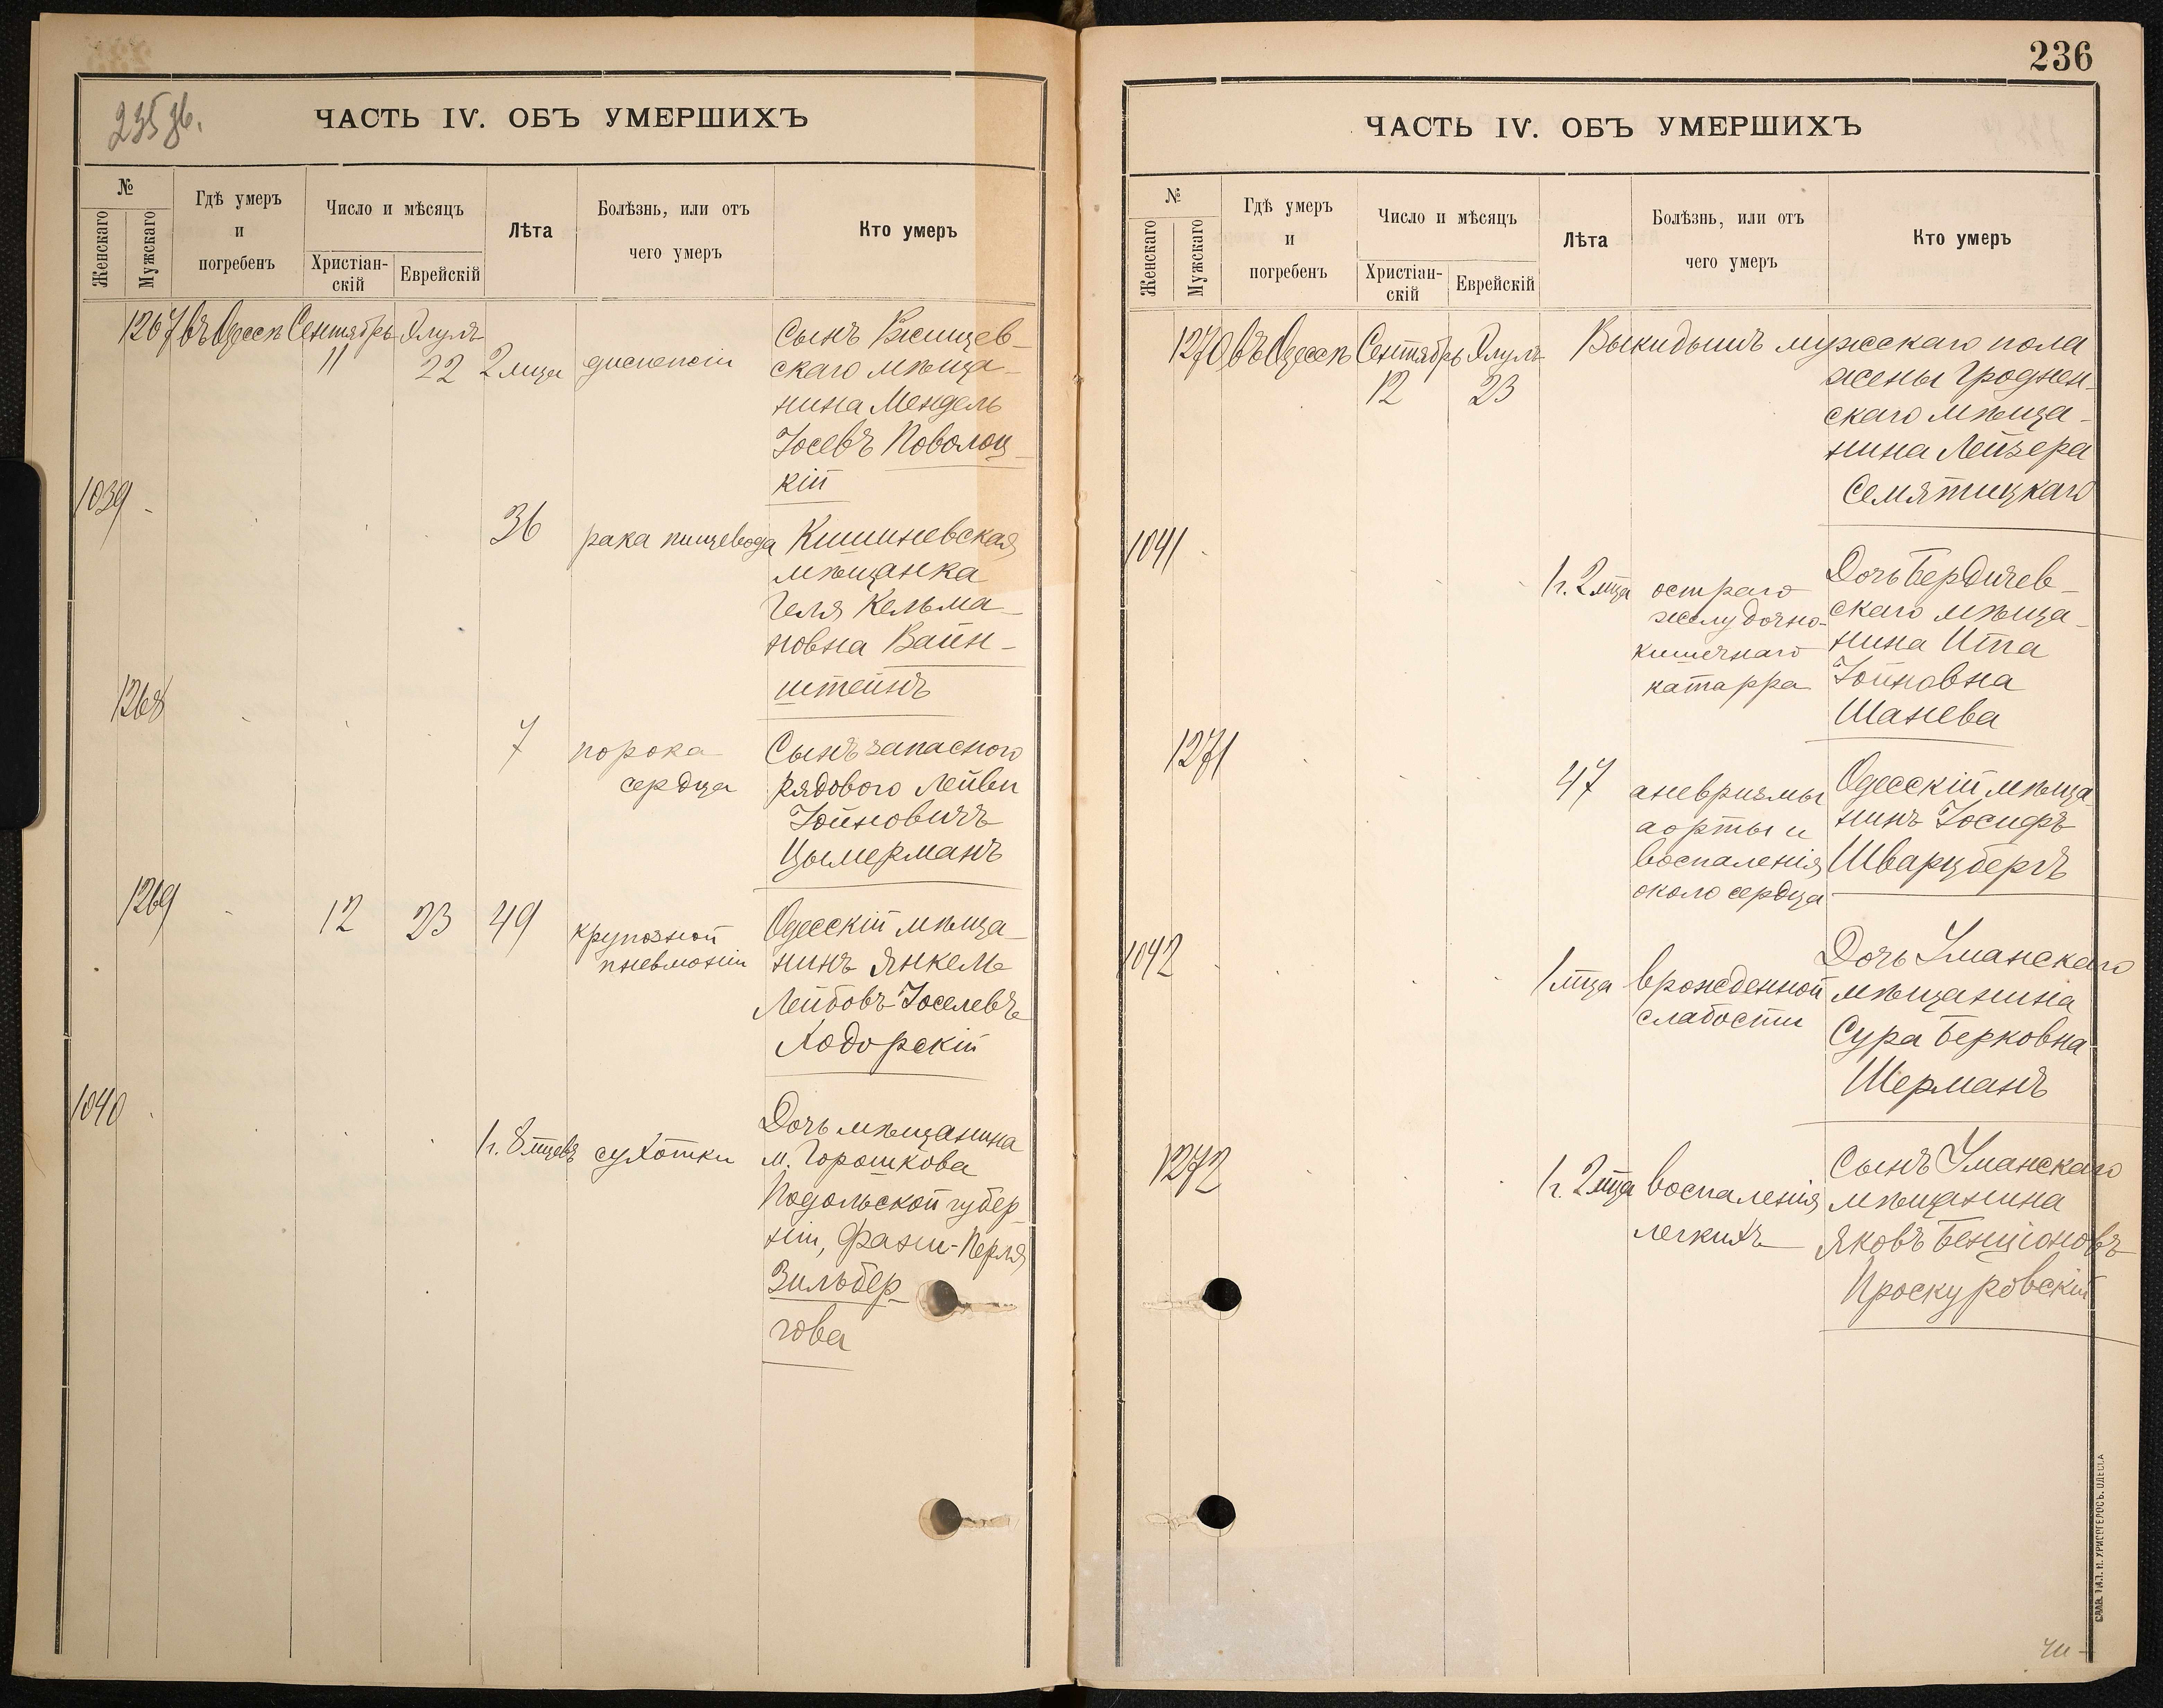 235 зв.
ЧАСТЬ IV. ОБЪ УМЕРШИХЪ
№
Женскаго
Мужскаго
Гдѣ умеръ
и
погребенъ
Число и мѣсяцъ
Христіан-
скій
Еврейскій
Лѣта
Болѣзнь, или отъ
чего умеръ
Кто умеръ
1267 въ Одессѣ Сентябрь Элулъ
11 22 2 мца диспепсіи
Сынъ
скаго мѣща-
нина Мендель
Іосевъ Поволоц-
кій
1039
36 рака пищевода
Кишиневская
мѣщанка
Геля Кельма-
новна Вайн-
штейнъ
1268
7 порока
сердца
Сынъ запаснаго
рядового Лейви
Іойновичъ
Цымерманъ
1269 12 23 49 крупозной
пневмоніи
Одесскій мѣща-
нинъ Янкель
Лейбовъ-Іоселевъ
Ходорскій
1040
1 г. 8 мцевъ сухотки
Дочь мѣщанина
м. Горошкова
Подольской губер-
ніи, Фани-Перля
Зильбер-
гова
236
ЧАСТЬ IV. ОБЪ УМЕРШИХЪ
№
Женскаго
Мужскаго
Гдѣ умеръ
и
погребенъ
Число и мѣсяцъ
Христіан-
скій
Еврейскій
Лѣта
Болѣзнь, или отъ
чего умеръ
Кто умеръ
1270 въ Одессѣ Сентябрь Элулъ
12 23
Выкидышъ мужскаго пола
жены Гроднен-
скаго мѣща-
нина Лейзера
Семятицкаго
1041
1 г. 2 мца остраго
желудочно-
кишечнаго
катарра
Дочь Бердичев-
скаго мѣща-
нина Ита
Іойновна
Шанева
1271
47 аневризмы
аорты и
воспаленія
около сердца
Одесскій мѣща
нинъ Іосифъ
Шварцбергъ
1042
1 мца врожденной
слабости
Дочь Уманскаго
мѣщанина
Сура Берковна
Шерманъ
1272
1 г. 2 мца воспаленія
легкихъ
Сынъ Уманскаго
мѣщанина
Яковъ Бенціоновъ
Проскуровскій
СЛАВ. ТИП. Н. ХРИСОГЕЛОСЪ. ОДЕССА